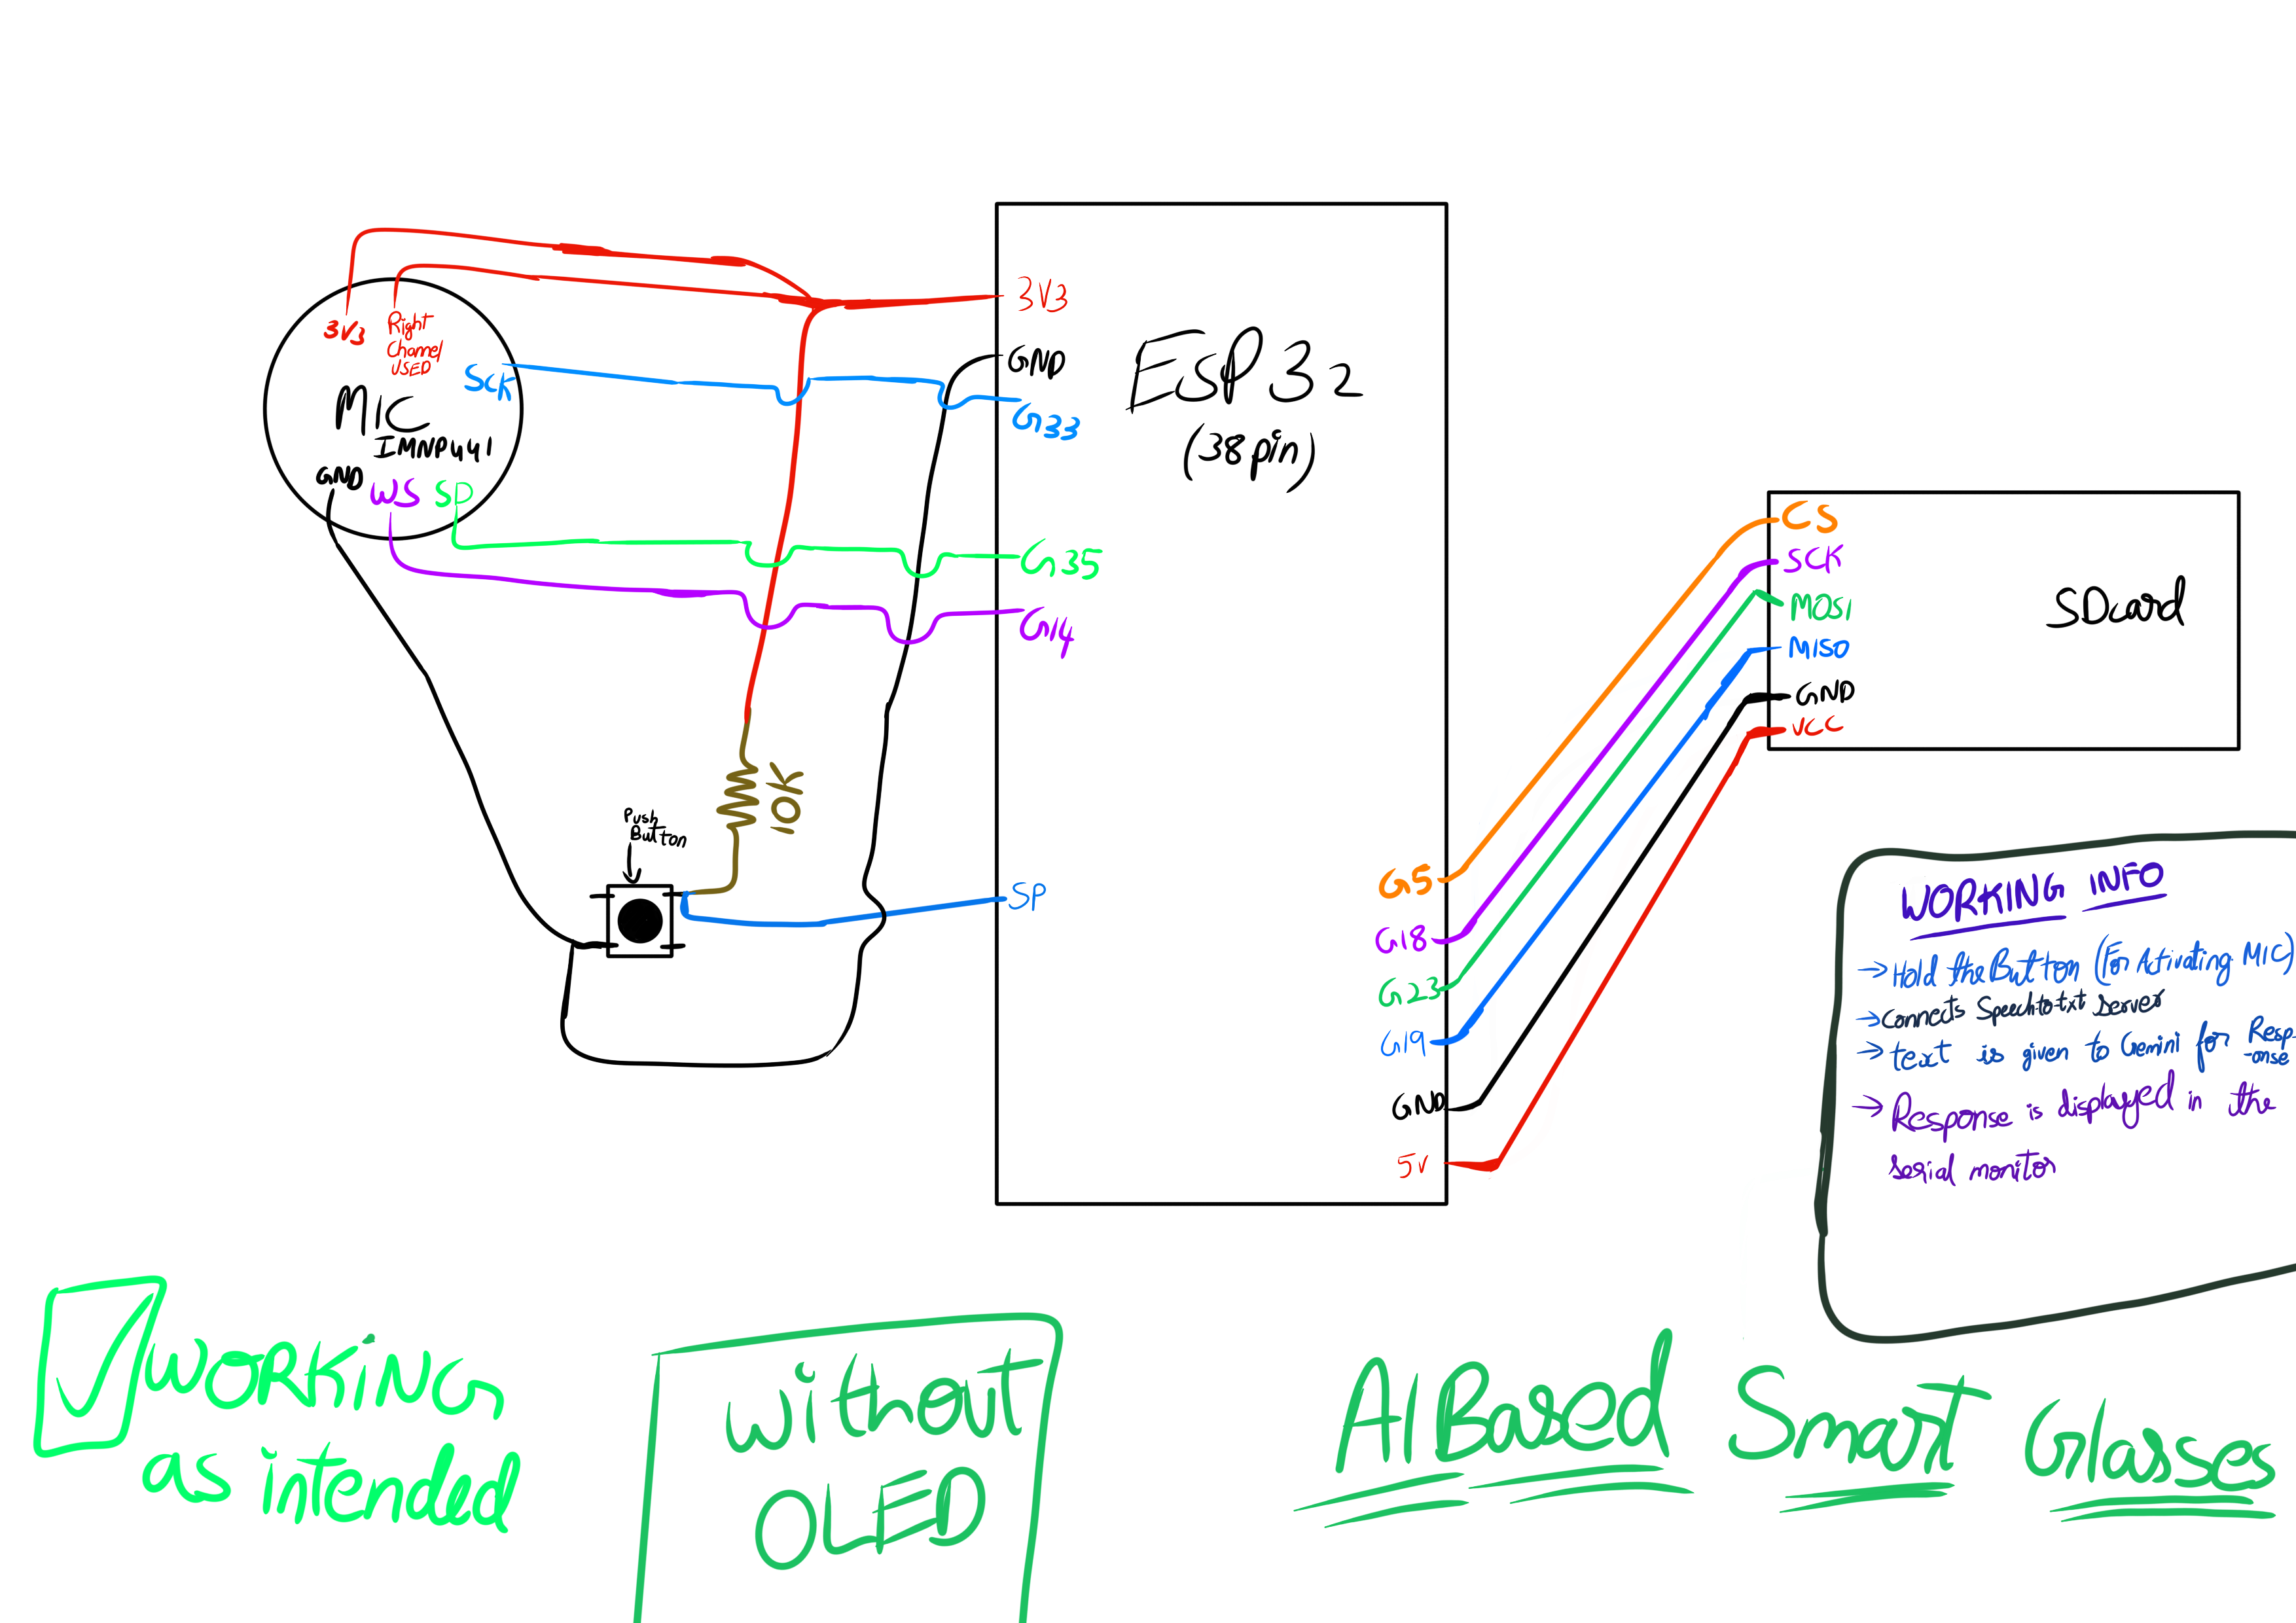 3V3
Right
Channel
USED
SCK
MIC
IMNP441
GND
WS SD
3V3
GND
G33
G35
G14
SP
ESP32
(38pin)
10K
Push
Button
G5
G18
G23
G19
GND
5V
CS
SCK
MOSI
MISO
GND
VCC
SDcard
WORKING INFO
→ Hold the Button (For Activating MIC)
→ Connects Speechtotxt Server
→ text is given to Gemini for Resp-
-onse
→ Response is displayed in the
serial monitor
WORKING
as intended
without
OLED
AI Based Smart Glasses